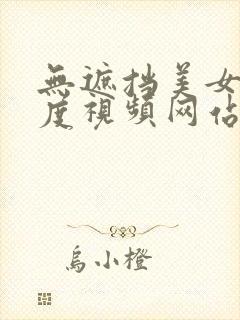 無遮挡美女
度視頻网佔
烏小橙